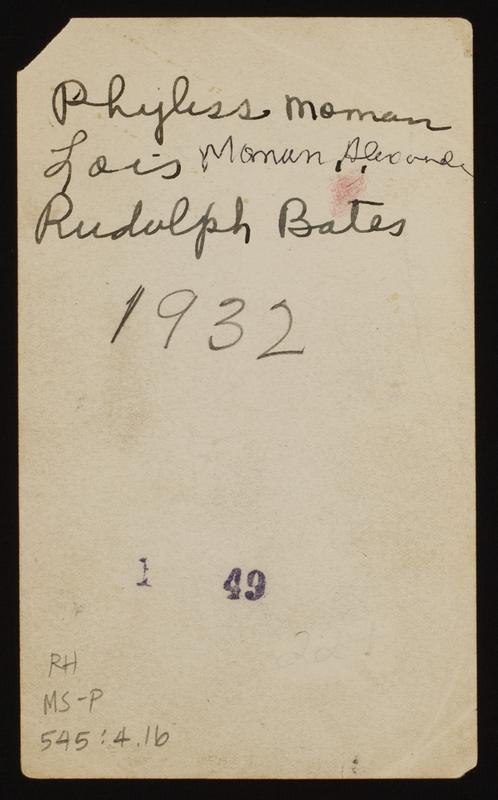 Phyliss Moman
Lois Moman Alexander
Rudolph Bates
1932
1 49
RH
MS-P
545:4.16